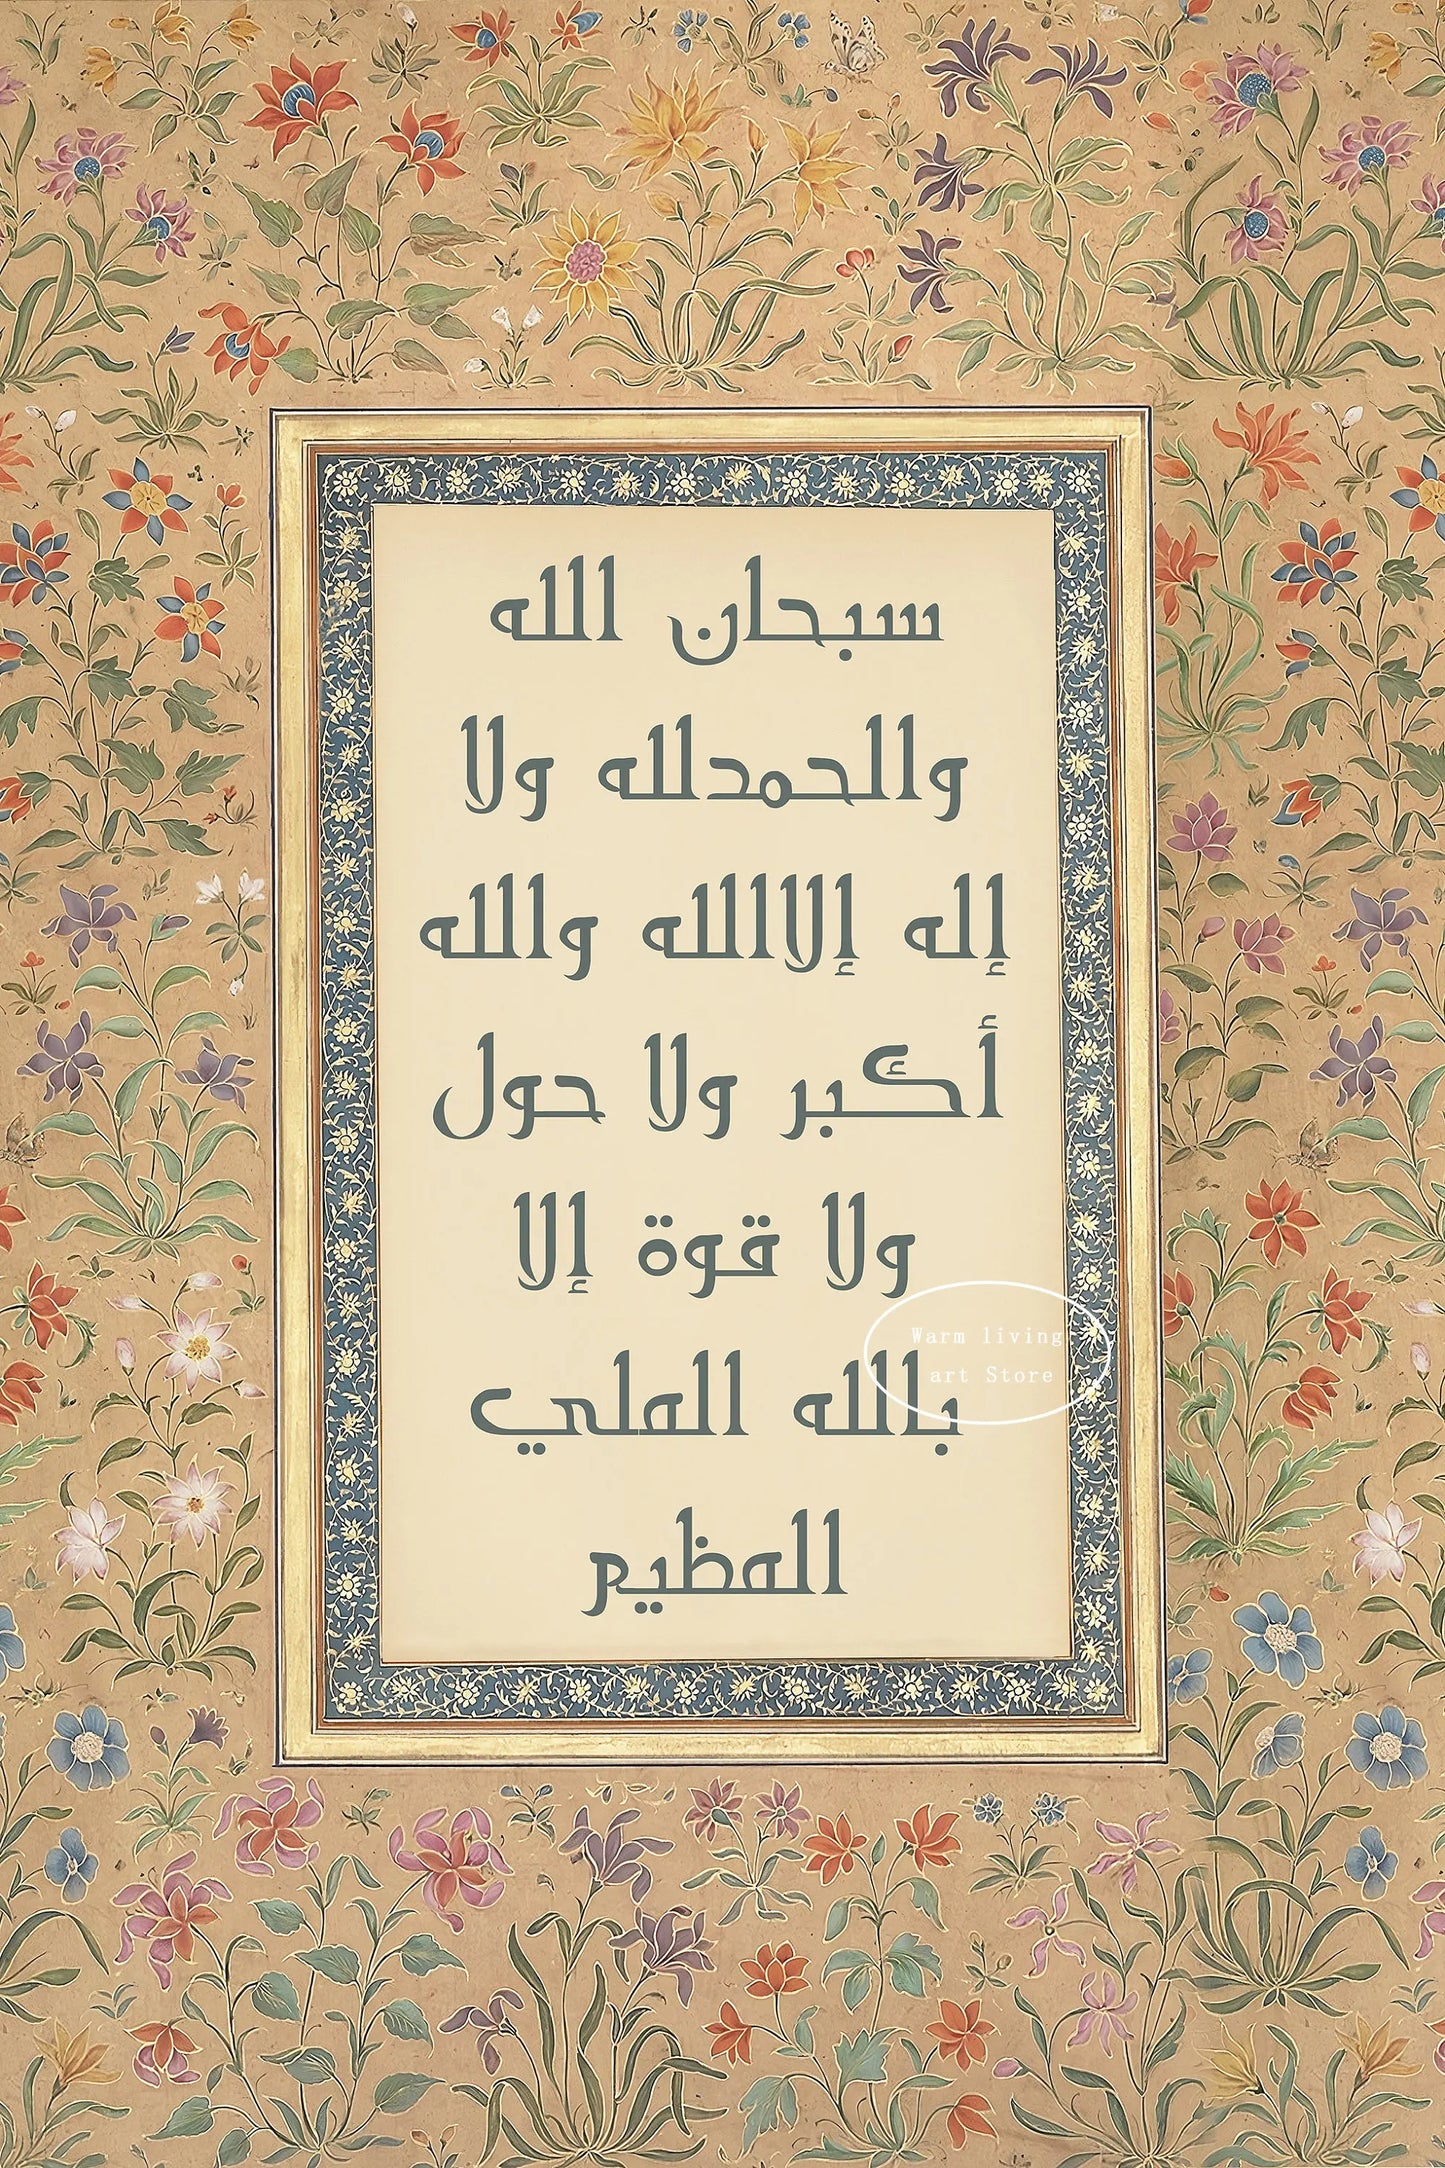 سبحان الله
والحمدلله ولا
إله إلاالله والله
أكبر ولا حول
ولا قوة إلا
بالله العلي
العظيم
Warm living
art Store